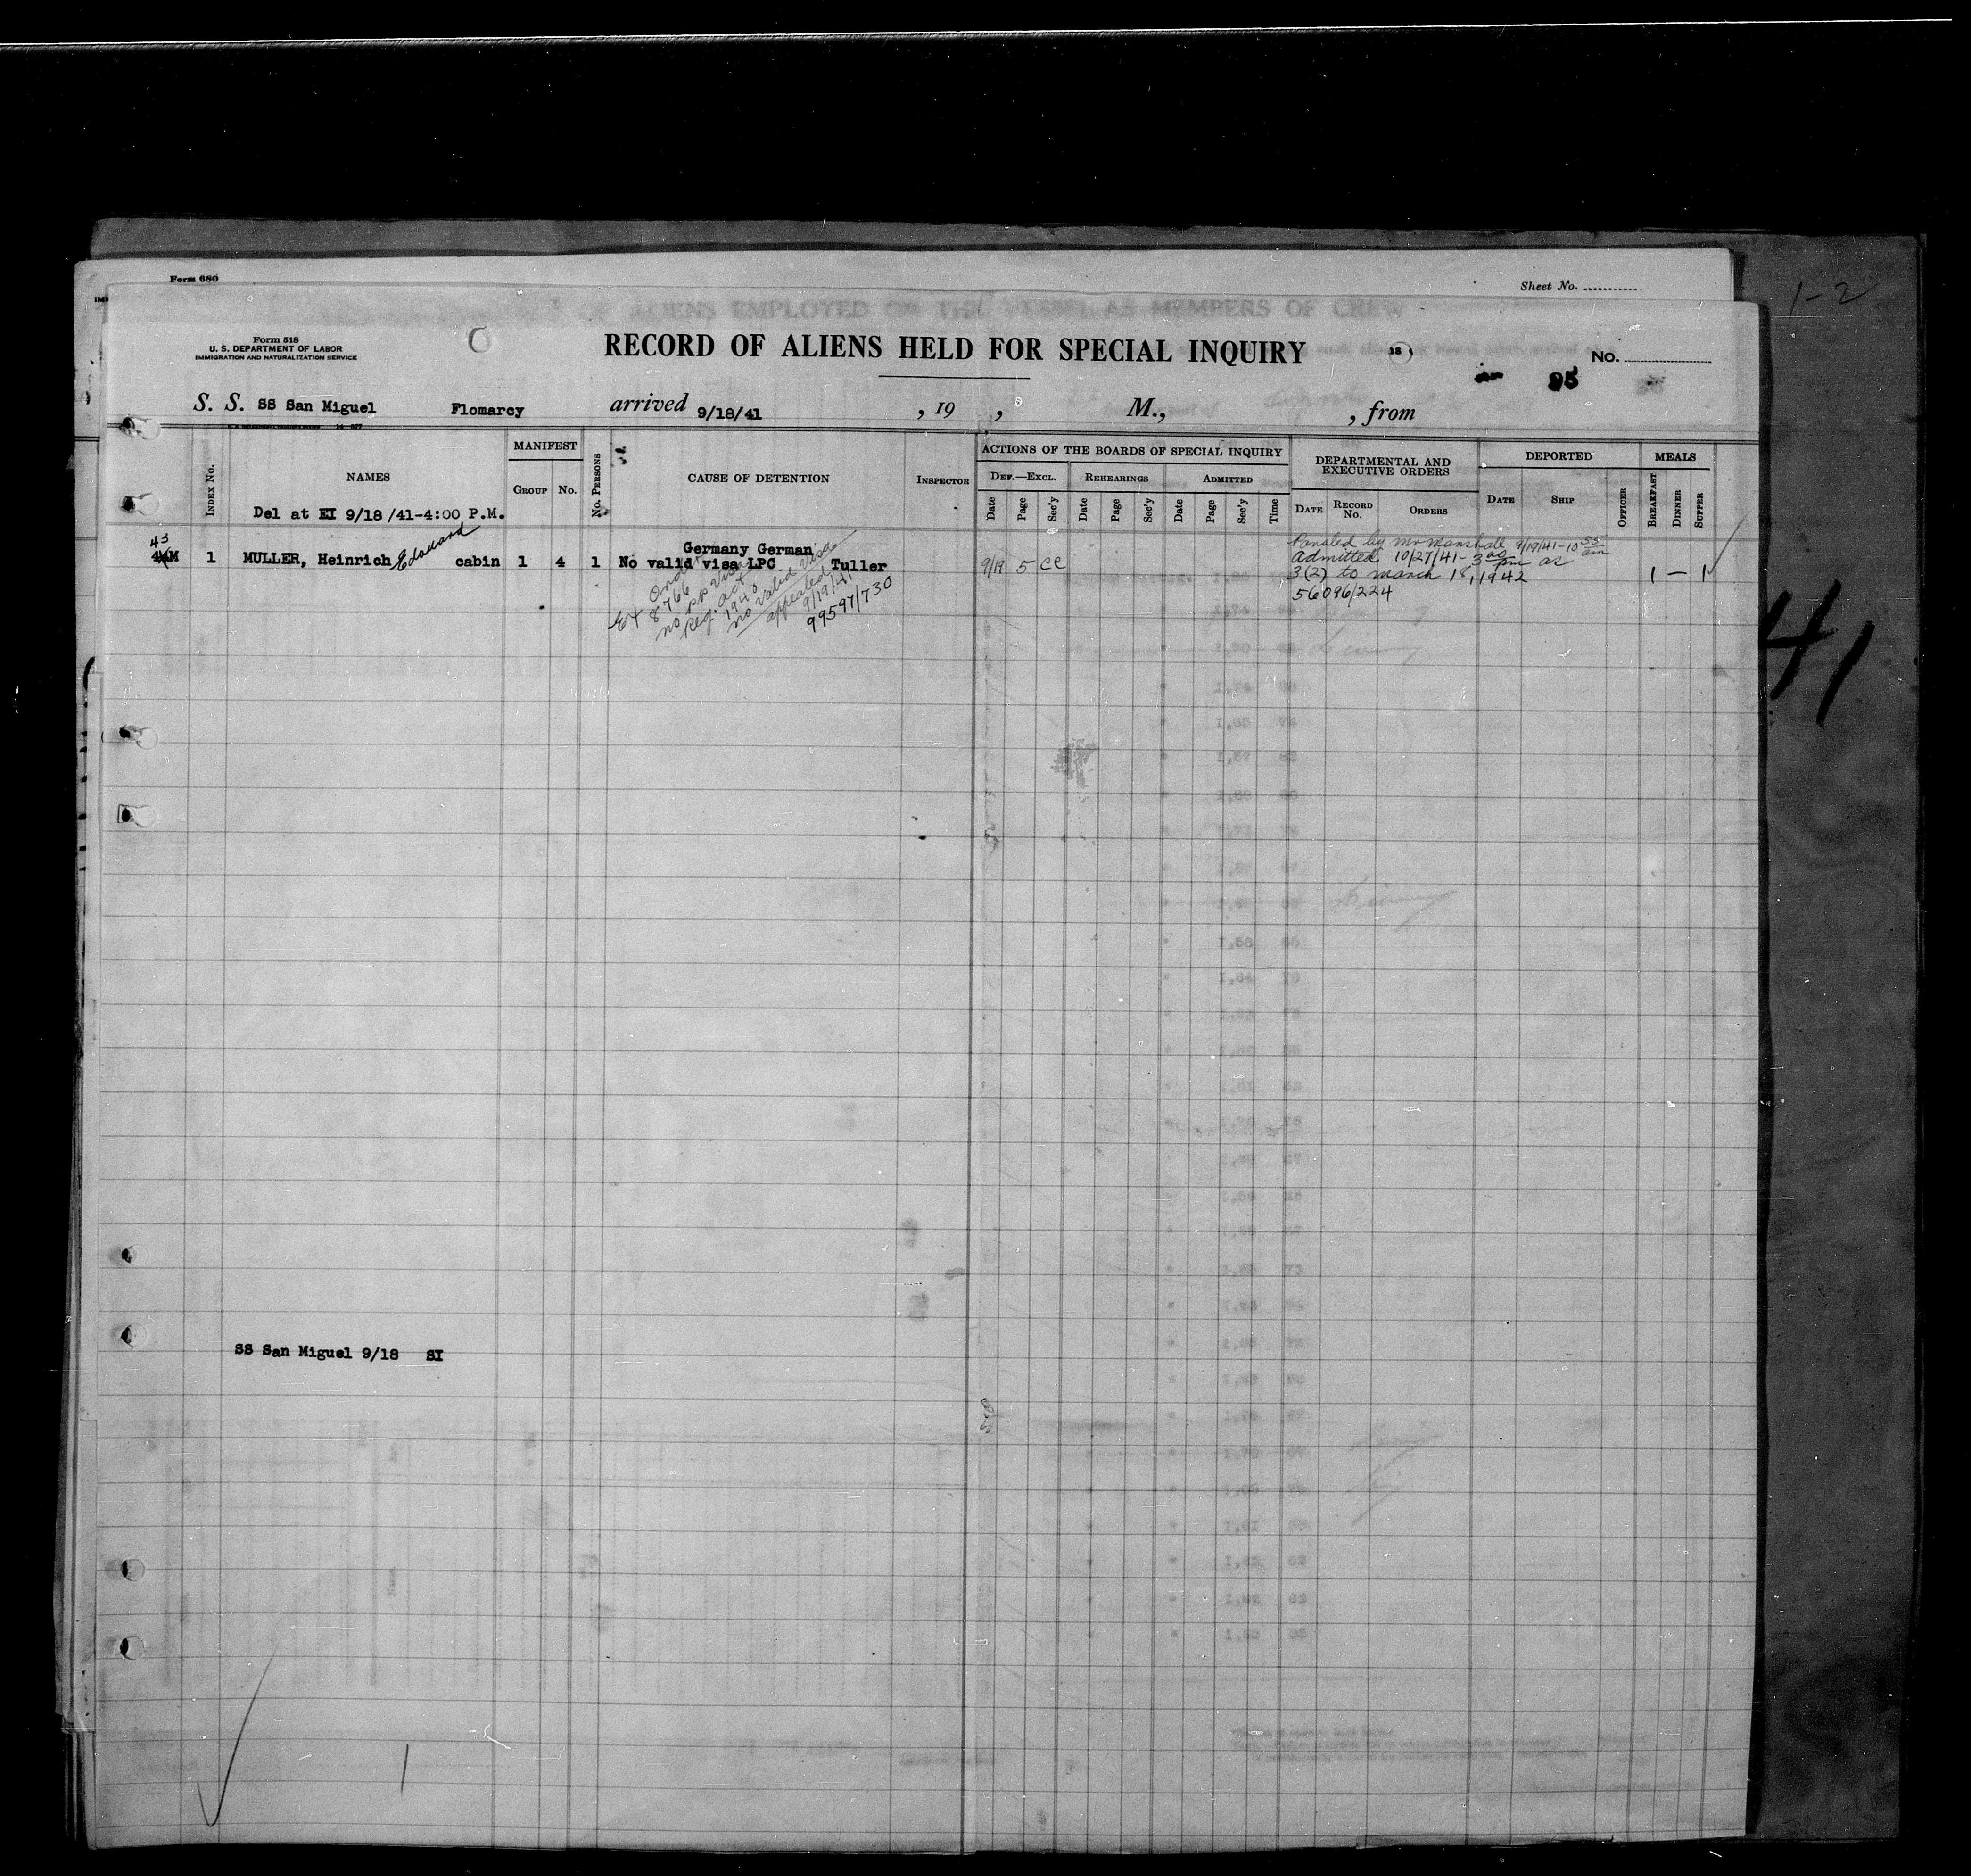 Form 680
Sheet No.
1-2
OF ALIENS EMPLOYED ON THE VESSEL AS MEMBERS OF CREW
Form 518
U. S. DEPARTMENT OF LABOR
IMMIGRATION AND NATURALIZATION SERVICE
RECORD OF ALIENS HELD FOR SPECIAL INQUIRY
18
No.
95
S. S. SS San Miguel Flomarcy arrived 9/18/41 , 19 , M., , from
MANIFEST
ACTIONS OF THE BOARDS OF SPECIAL INQUIRY
DEPARTMENTAL AND EXECUTIVE ORDERS
DEPORTED
MEALS
INDEX No.
NAMES
GROUP
No.
No. PERSONS
CAUSE OF DETENTION
INSPECTOR
DEF.—EXCL.
REHEARINGS
ADMITTED
Date Page Sec'y Date Page Sec'y Date Page Sec'y Time
DATE RECORD No. ORDERS
DATE SHIP OFFICER
BREAKFAST DINNER SUPPER
Del at EI 9/18/41-4:00 P.M.
43
M 1 MULLER, Heinrich Edouard cabin 1 4 1
Germany German
No valid visa LPC Tuller
Order
8766
no pp visa
Reg. act
1940
no valid visa
appealed
9/19/41
99597/730
9/19 5 CC
by Mr Marshall 9/19/41-10 55 am
Admitted 10/27/41- 3 pm as
3(2) to March 18, 1942
56096/224
1 — 1
41
SS San Miguel 9/18 SI